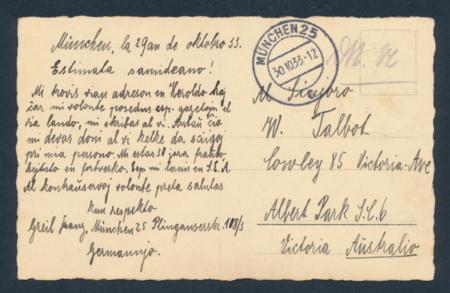 München, la 29an de oktobro 33.
Estimata samideano!
Mi trovis vian adreson en Heroldo kaj
ĉar mi volonte posedus esp. gazetojn el
via lando, mi skribas al vi. Antaŭ ĉio
mi devas doni al vi kelke da sciigoj
pri mia persono. Mi estas 30 jara fraŭlo
en fortoreko. Esp. mi lernis en
volonte preta salutas
kun respekto
Greil Franz, München 25 Plinganserstr. 118/3
Germanujo.
MÜNCHEN 25
30.10.33.-12
Sinjoro
W. Talbot
Cowley 85 Victoria-Ave
Albert Park S.C.6
Victoria Australio